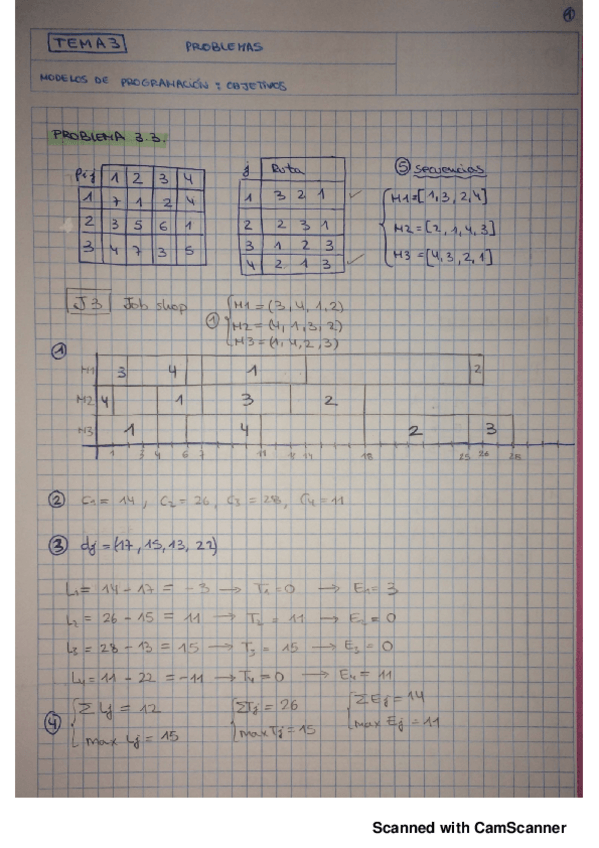 1
TEMA 3 PROBLEMAS
MODELOS DE PROGRAMACIÓN : OBJETIVOS
PROBLEMA 3.3.
Pij 1 2 3 4
1 7 1 2 4
2 3 5 6 1
3 4 7 3 5
j Ruta
1 3 2 1 ✓
2 2 3 1
3 1 2 3
4 2 1 3 ✓
5 secuencias
M1=[1,3,2,4]
M2=[2,1,4,3]
M3=[4,3,2,1]
J3 Job shop
1
M1 = (3,4,1,2)
M2 = (4,1,3,2)
M3 = (1,4,2,3)
1
M1 3 4 1 2
M2 4 1 3 2
M3 1 4 2 3
1 3 4 6 7 11 14 18 25 26 28
2 C1= 14, C2= 26, C3= 28, C4=11
3 dj = (17,15,13,22)
L1= 14-17 = -3 → T1=0 → E1=3
L2 = 26-15 = 11 → T2 = 11 → E2=0
L3 = 28-13 = 15 → T3 = 15 → E3=0
L4=11-22 =-11 → T4=0 → E4=11
4 ΣLj = 12 ΣTj = 26 ΣEj=14
max Lj = 15 max Tj=15 max Ej=11
Scanned with CamScanner